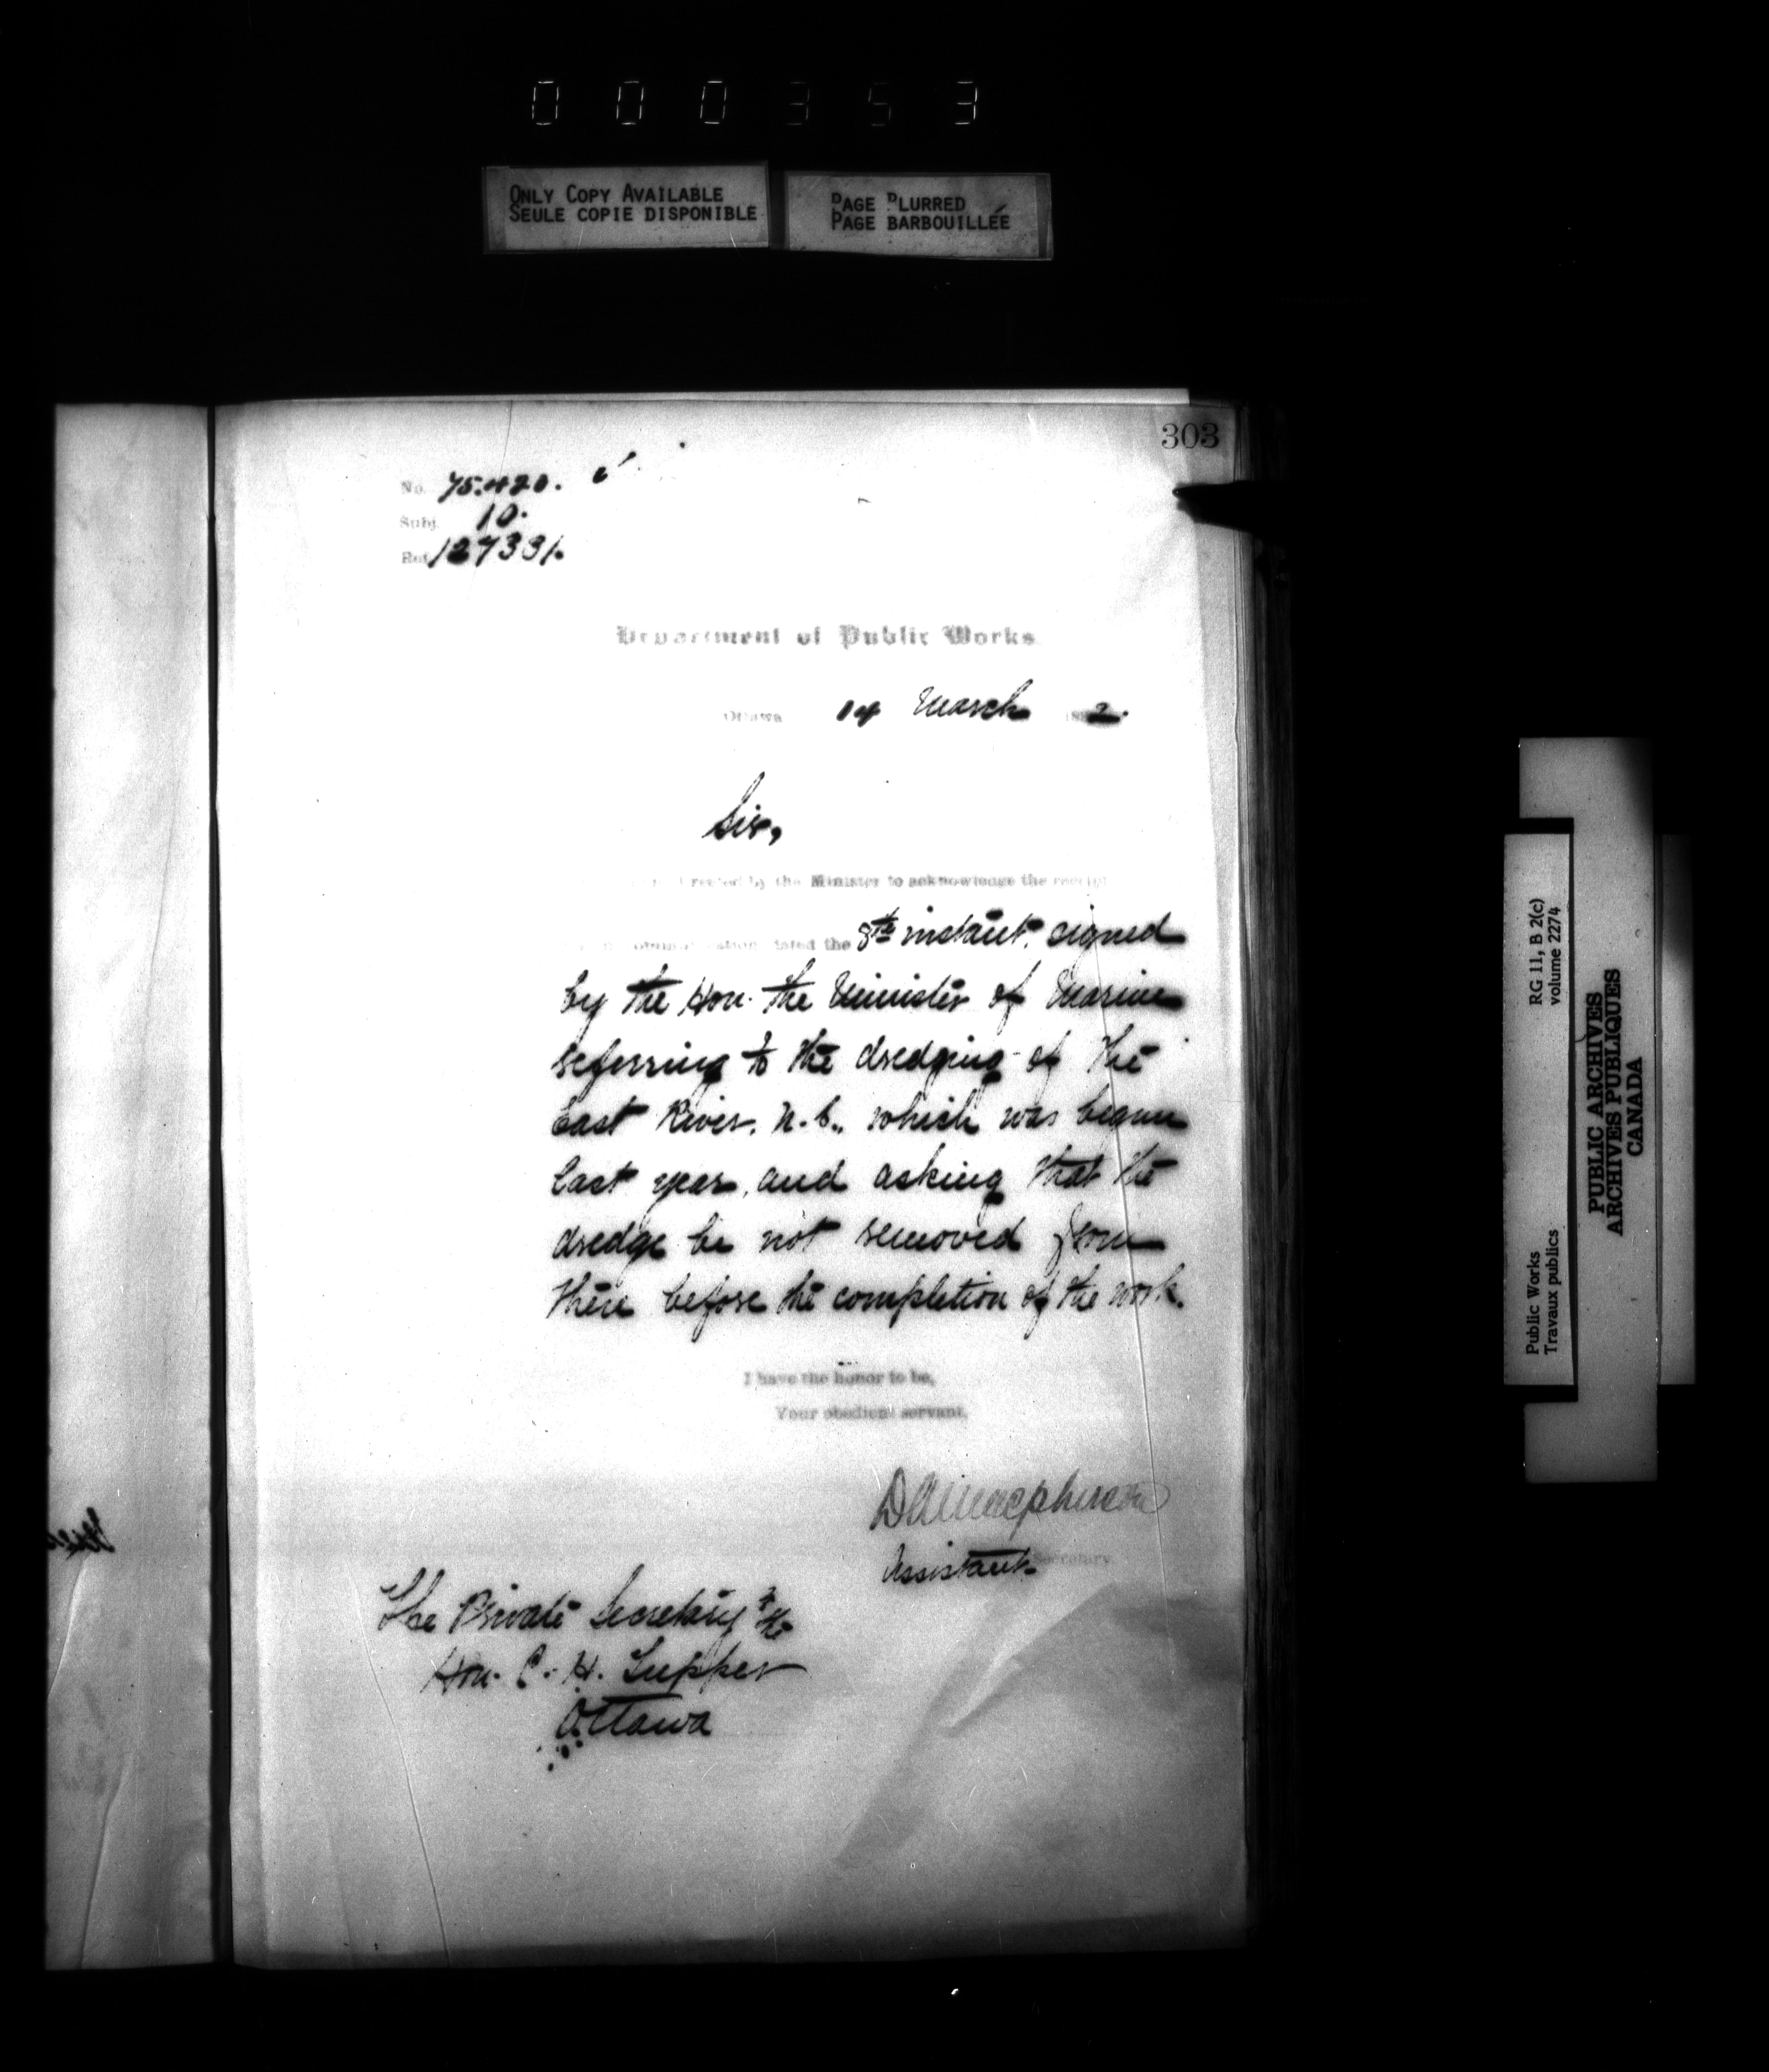 000353
ONLY COPY AVAILABLE
SEULE COPIE DISPONIBLE
PAGE BLURRED
PAGE BARBOUILLÉE
303
No. 75.420.
Subj. 10.
Ref. 127331.
Department of Public Works
Ottawa 14 March 2.
Sir,
directed by the Minister to acknowledge the receipt
dated the 8th instant. signed
by the Hon. the Minister of Marine
referring to the dredging of the
East River, N.S., which was begun
last year, and asking that the
dredge be not removed from
there before the completion of the work.
I have the honor to be,
Your obedient servant,
D A Macpherson
Assistant Secretary
The Private Secretary to the
Hon. C. H. Tupper
Ottawa
RG 11, B 2(c)
volume 2274
Public Works
Travaux publics
PUBLIC ARCHIVES
ARCHIVES PUBLIQUES
CANADA